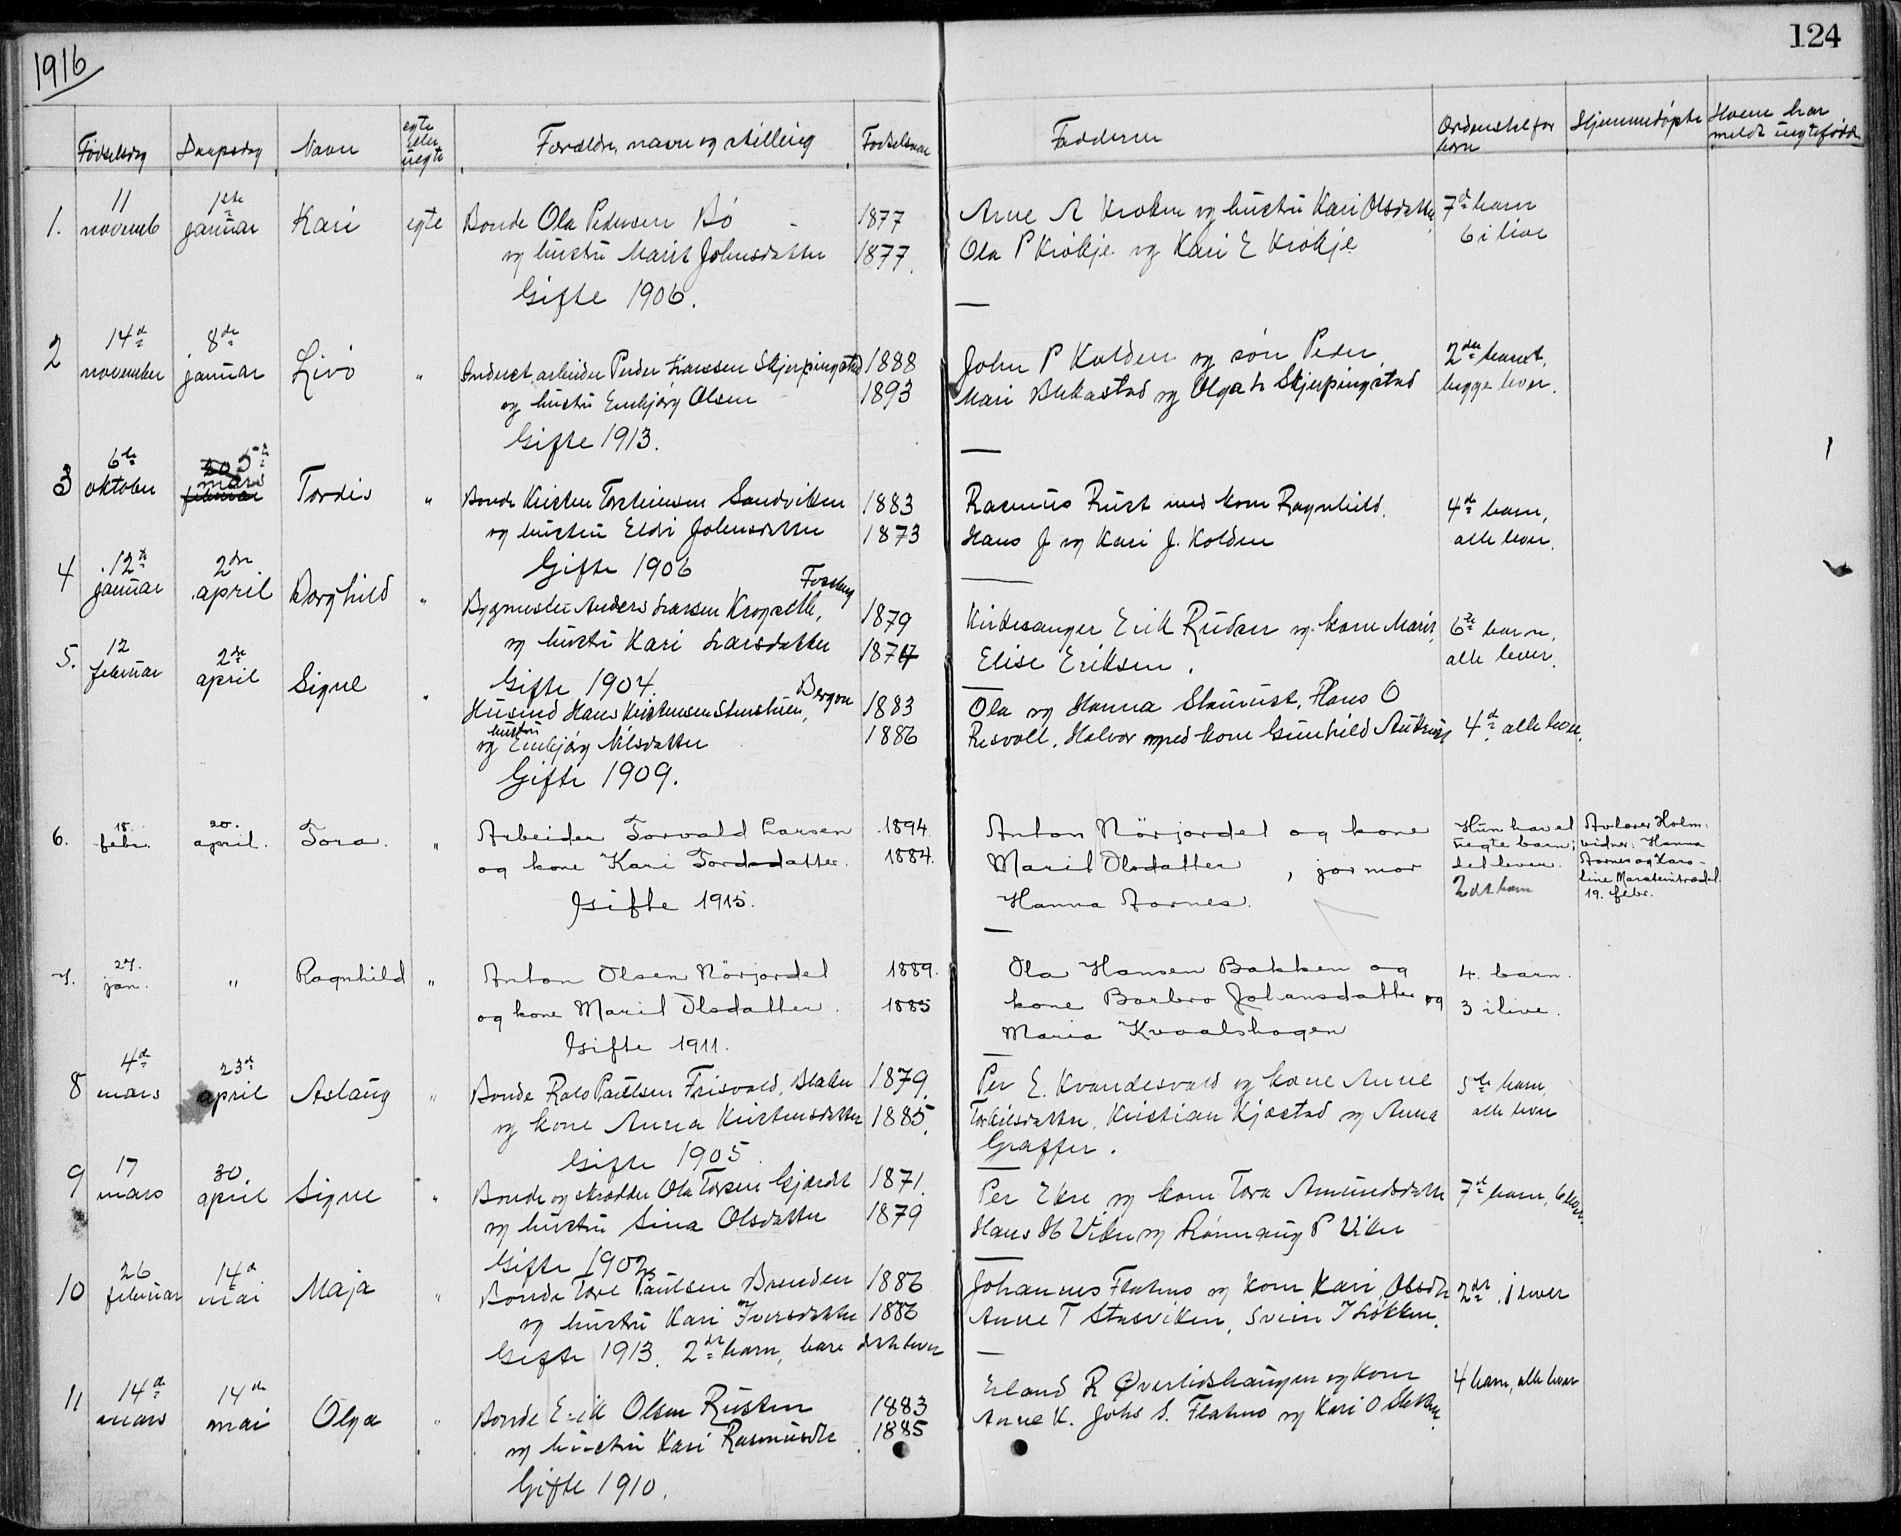 124
1916
Fødselsdag Daapsdag Navn egte eller uegte Forældre, navn og stilling Fødselsaar Faddere Ordenstal for barn Hjemmedøpte Hvem har meldt uegtefødte
1. 11 novemb 1ste januar Kari egte Bonde Ola Pedersen Bø 1877 Arne A Kroken og hustru Kari Olsdatter, 7d barn
og hustru Marit Johnsdatter 1877. Ola P Krökje og Kari E Krökje 6 i live
Gifte 1906.
2 14d november 8de januar Livo " Industriarbeider Peder Hanssen Skjerpingstad 1888 John P Kolden og søn Peder, 2det barn,
og hustru Embjørg Olsen 1893 Mari Blekastad og Olga L Skjerpingstad begge lever.
Gifte 1913.
3 6te oktober 20 februar 5te mars Tordis " Bonde Kristen Torsteinsen Sandviken 1883 Rasmus Rust med kone Ragnhild, 4d barn,
og hustru Eldri Johnsdatter 1873 Hans J og Kari J. Kolden alle lever.
Gifte 1906
4 12te januar 2den april Borghild " Bygmester Anders Larsen Krogseth, Fossberg 1879 Kirkesanger Erik Rudan og kone Marit, 6te barn,
og hustru Kari Larsdatter 1877 Elise Eriksen. alle lever.
Gifte 1904.
5. 12 februar 2de april Signe " Husmd Hans Kristensen Stenstuen, Bergom 1883 Ola og Hanna Stamust, Hans O
og hustru Embjørg Nilsdatter 1886 Risvoll, Halvor med kone Gunhild 4d alle lever.
Gifte 1909.
6. 18. febr. 20. april. Tora. " Arbeider Torvald Larsen 1894. Anton Nörjordet og kone Hun har et Avlaser Holm.
og kone Kari Tordsdatter. 1884. Marit Olsdatter, jormor uegte barn; vidner: Hanna
Gifte 1915. Hanna Aarnes. det lever. Aarnes og Karo-
2det barn line Marsteintrædet
19. febr.
7. 27. jan. " Ragnhild " Anton Olsen Nörjordet 1889. Ola Hansen Bakken og 4. barn.
og kone Marit Olsdatter. 1885 kone Barbro Johansdatter og 3 i live.
Gifte 1911. Maria Kvaalshagen
8 4d mars 23d april Aslaug " Bonde Paulsen Frisvold, 1879. Per E. Kvandesvold og kone Anne 5te barn,
og kone Anna Kristensdatter 1885. Torkilsdatter, Kristian Kjæstad og Anna alle lever
Gifte 1905. Graffer.
9 17 mars 30 april Signe " Bonde og skrædder Ola Torsen Gjærdet 1871. Per Ekre og kone Tora Amundsdatter 7d barn, 6 lever.
og hustru Sina Olsdatter 1879 Hans H Viken og Rønnaug P Viken
Gifte 1902
10 26 februar 14d mai Maja " Bonde Tore Paulsen Brenden 1886 Johannes Flatmo og kone Kari Olsdtr 2det, 1 lever
og hustru Kari Iversdatter 1886 Anne T Stasviken, Svein T Løkken.
Gifte 1913. 2det barn, bare dette lever
11 14d mars 14de mai Olga " Bonde Erik Olsen Rusten 1883 Erland R Øverlidshaugen og kone 4 barn, alle lever
og hustru Kari Rasmusdtr 1885 Anne K. Johs S. Flatmo og Kari O
Gifte 1910.